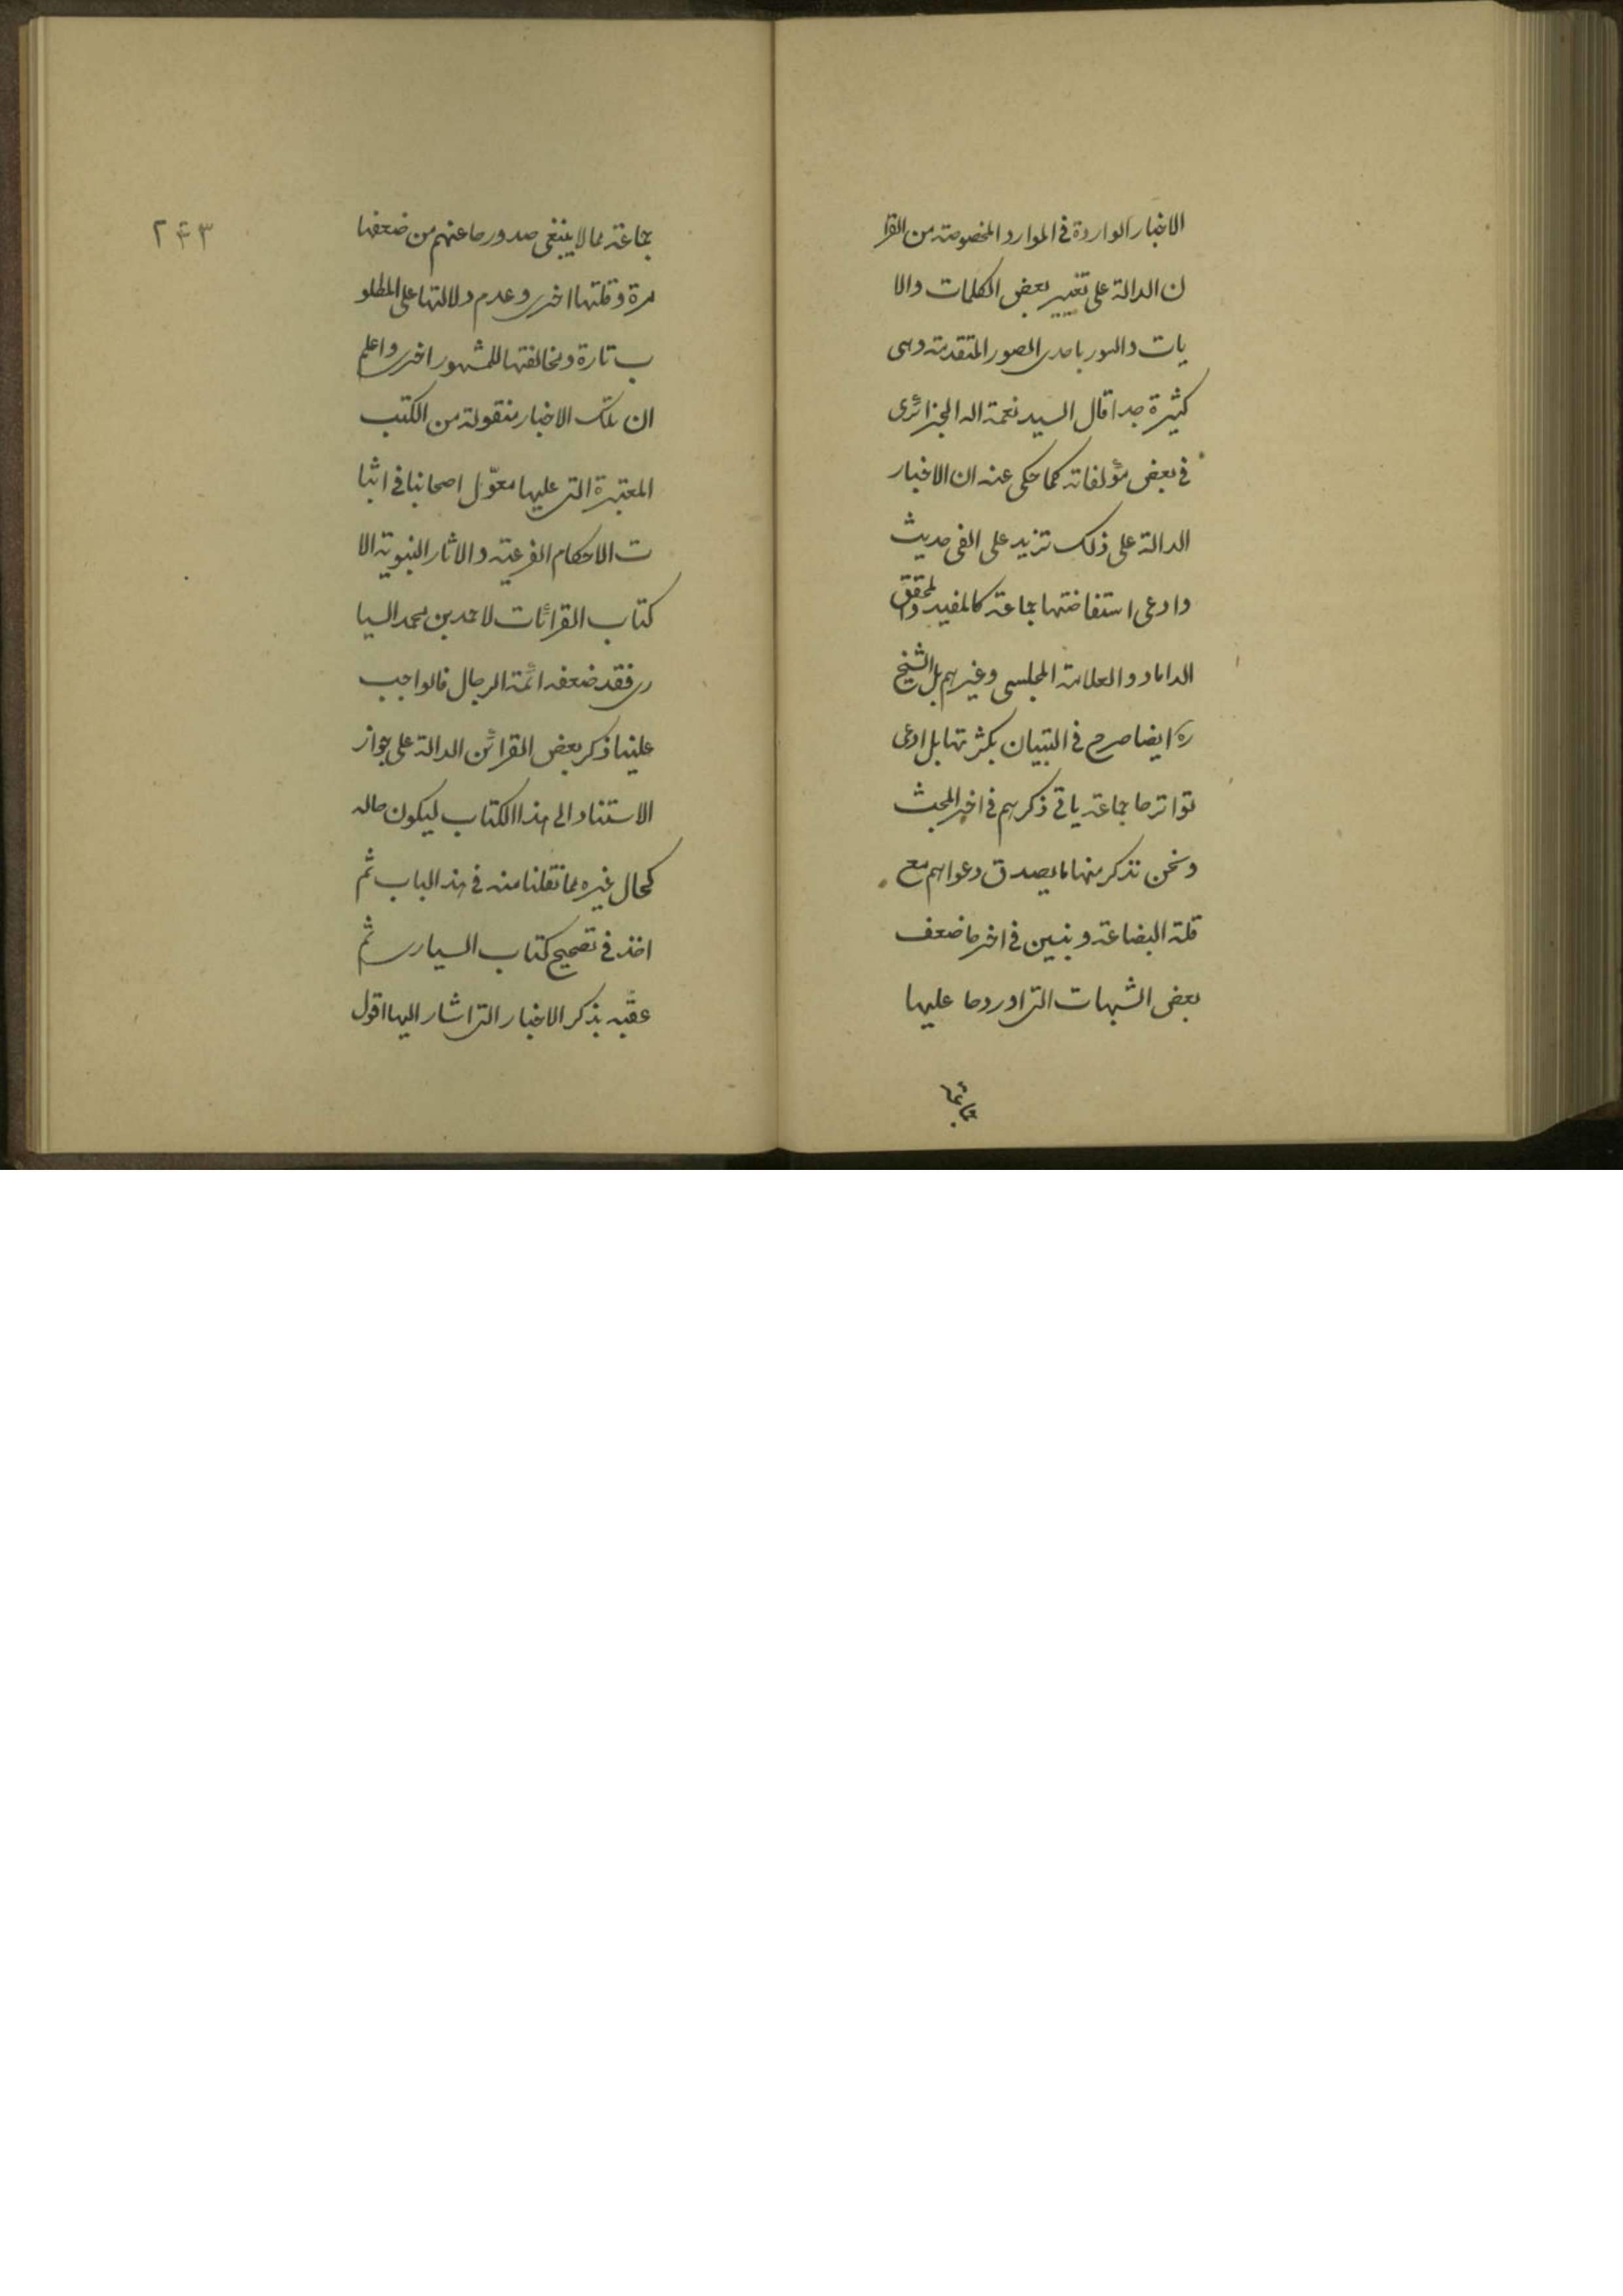 الاخبار الواردة فى الموارد المخصوصة من القرا
ن الدالة على تغيير بعض الكلمات والا
يات والسور باحدى الصور المتقدمة وهى
كثيرة جدا قال السيد نعمة اله الجزائرى
فى بعض مؤلفاته كما حكى عنه ان الاخبار
الدالة على ذلك تزيد على الفى حديث
وادعى استفاضتها جماعة كالمفيد والمحقق
الداماد والعلامة المجلسى وغيرهم بل الشيخ
ره ايضا صرح فى التبيان بكثرتها بل ادعى
تواترها جماعة ياتى ذكرهم فى اخر المبحث
ونحن نذكر منها ما يصدق دعواهم مع
قلة البضاعة ونبين فى اخرها ضعف
بعض الشبهات التى اوردها عليها
جماعة
٢٤٣
جماعة مما لا ينبغى صدورها عنهم من ضعفها
مرة وقلتها اخرى وعدم دلالتها على المطلو
ب تارة ومخالفتها للمشهور اخرى واعلم
ان تلك الاخبار منقولة من الكتب
المعتبرة التى عليها معوّل اصحابنا فى اثبا
ت الاحكام الفرعية والاثار النبوية الا
كتاب القرائات لاحمد بن محمد السيا
رى فقد ضعفه ائمة الرجال فالواجب
علينا ذكر بعض القرائن الدالة على جواز
الاستناد الى هذا الكتاب ليكون حاله
كحال غيره مما نقلنا منه فى هذ الباب ثم
اخذ فى تصحيح كتاب السيارى ثم
عقّبه بذكر الاخبار التى اشار اليها اقول